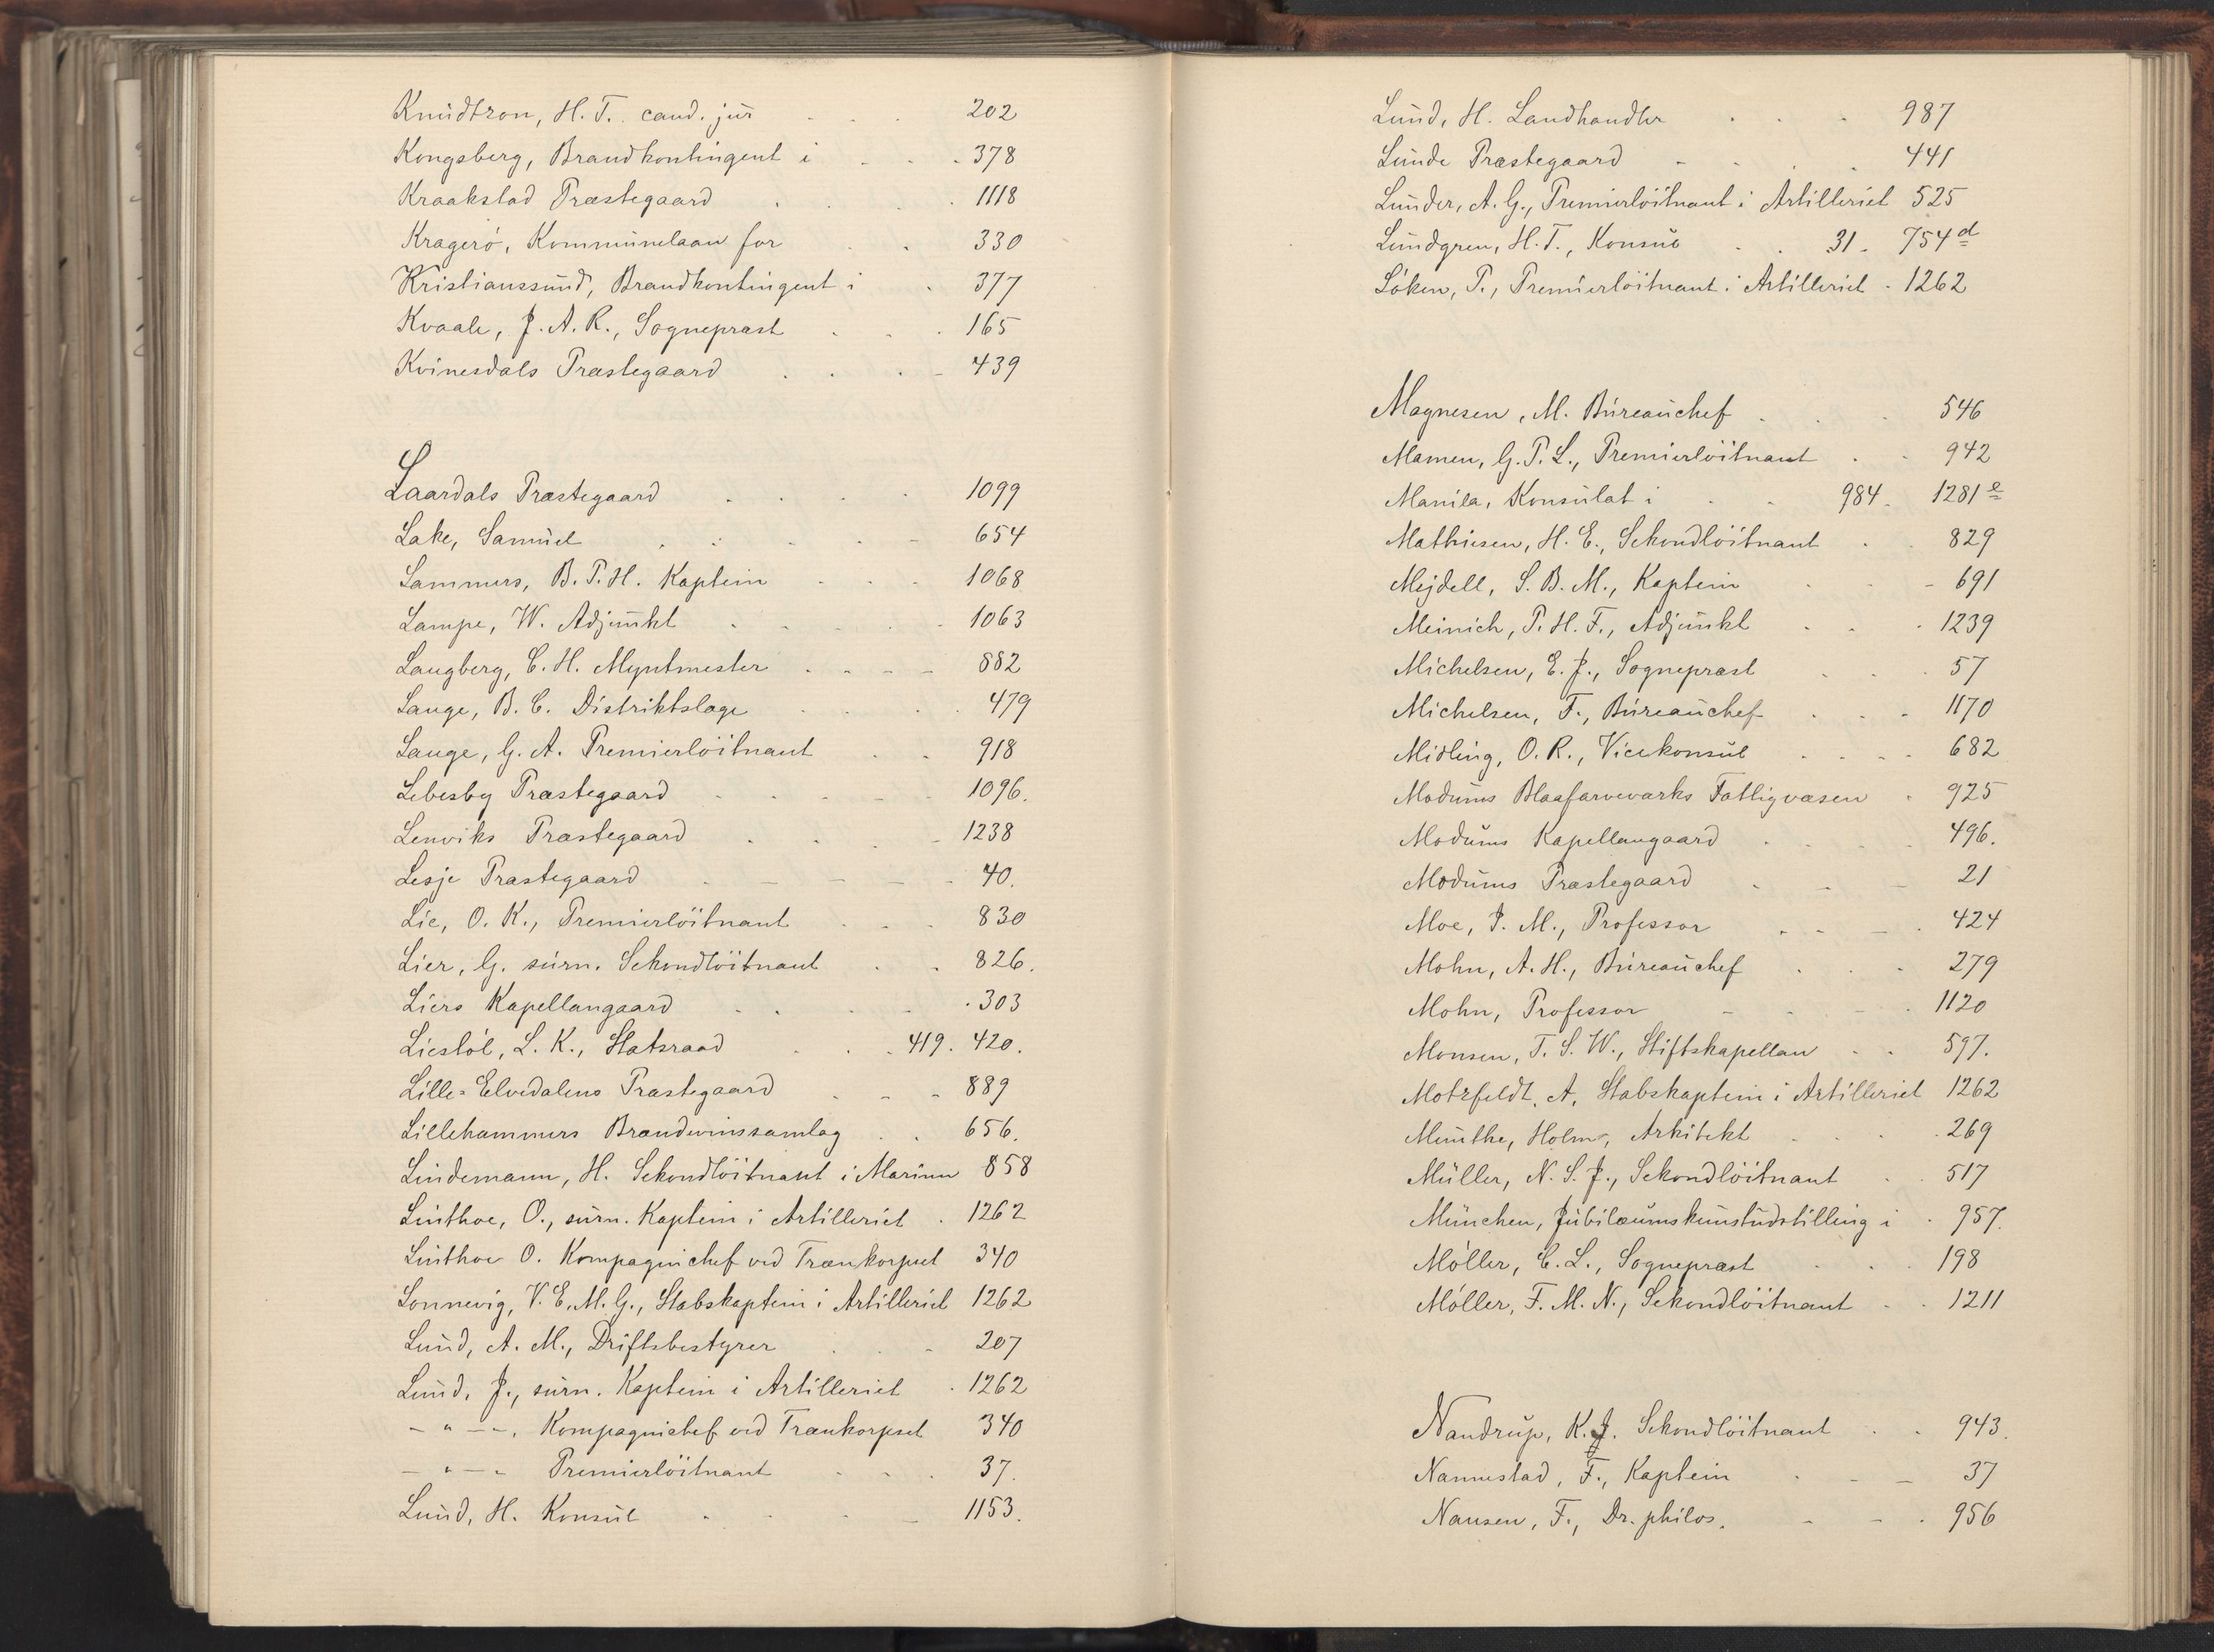 Knudtzon, H. T. cand. jur . . . 202
Kongsberg, Brandkontingent i . . . 378
Kraakstad Præstegaard . . . . 1118
Kragerö, Kommunelaan for . . 330
Kristianssund, Brandkontingent i . 377
Kvaale, J. A. R., Sognepræst . . . 165
Kvinesdals Præstegaard . . . - 439
Laardals Præstegaard . . . . 1099
Lake, Samuel . . . - - 654
Lammers, B. T. H. Kaptein . . . 1068
Lampe, W. Adjunkt . . . . 1063
Langberg, C. H. Myntmester . . - - 882
Lange, B. C. Distriktslæge . . . . 479
Lange, G. A. Premierlöitnant . . 918
Lebesby Præstegaard . . . - - 1096.
Lenviks Præstegaard . . . - 1238
Lesje Præstegaard . - - - - 40.
Lie, O. K., Premierlöitnant . . . 830
Lier, G. surn. Sekondlöitnant . . 826.
Liers Kapellangaard . . . - . 303
Liestöl, L. K., Statsraad . . . 419. 420.
Lille-Elvedalens Præstegaard . - - 889
Lillehammers Brændevinssamlag . . 656.
Lindemann, H. Sekondlöitnant i Marinen 858
Linthoe, O., surn. Kaptein i Artilleriet . 1262
Linthoe O. Kompagnichef ved Trænkorpset 340
Lonnevig, V. E. M. G., Stabskaptein i Artilleriet 1262
Lund, A. M., Driftsbestyrer . . - 207
Lund, J., surn. Kaptein i Artilleriet . 1262
- " - -. Kompagnichef ved Trænkorpset 340
- " - - Premierlöitnant . . . 37.
Lund, H. Konsul . . . - 1153.
Lund, H. Landhandler . . . 987
Lunde Præstegaard - - . . 441
Lunder, A. G., Premierlöitnant i Artilleriet 525
Lundgren, H. T., Konsul . . 31. 754 d
Löken, P., Premierlöitnant i Artilleriet . 1262
Magnesen, M. Bureauchef . . . 546
Mamen, G. P. L., Premierlöitnant . . 942
Manila, Konsulat i . . 984. 1281 e
Mathiesen, H. E., Sekondlöitnant . . 829
Mejdell, S. B. M., Kaptein . . - 691
Meinich, P. H. F., Adjunkt . . . 1239
Michelsen, E. J., Sognepræst . . . 57
Michelsen, F., Bureauchef . . . 1170
Midling, O. R., Vicekonsul . . . . 682
Modums Blaafarveværks Fattigvæsen . 925
Modums Kapellangaard . . . . 496.
Modums Præstegaard . . - 21
Moe, J. M., Professor . . - . 424
Mohn, A. H., Bureauchef . . . 279
Mohn, Professor - - - . 1120
Monsen, T. S. W., Stiftskapellan . . 597.
Motzfeldt, A. Stabskaptein i Artilleriet 1262
Munthe, Holm, Arkitekt . . . . 269
Müller, N. S. J., Sekondlöitnant . . 517
München, Jubilæumskunstudstilling i . 957.
Möller, C. L., Sognepræst . . . 198
Möller, F. M. N., Sekondlöitnant . . 1211
Nandrup, K. J. Sekondlöitnant . . 943.
Nannestad, F., Kaptein . - - 37
Nansen, F., Dr. philos. - - . 956